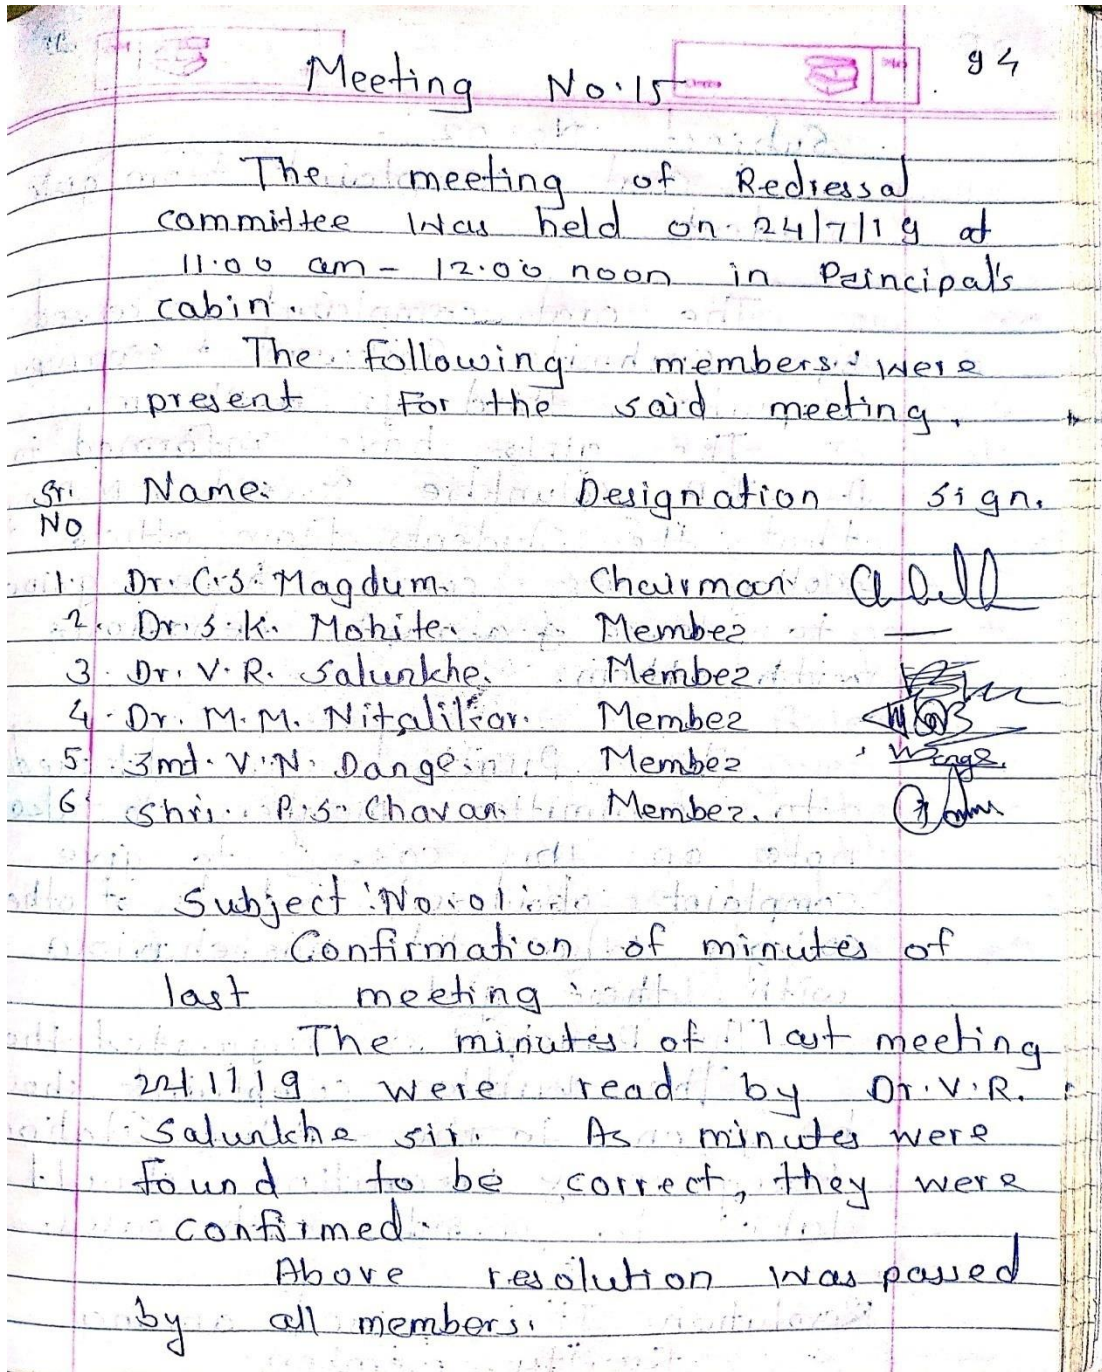 94
Meeting No:15
The meeting of Redressal
committee was held on 24/7/19 at
11.00 am - 12.00 noon in Principal's
cabin.
The following members were
present for the said meeting.
Sr. No Name. Designation Sign.
1. Dr. C.S. Magdum. Chairman
2. Dr. S.K. Mohite. Member —
3. Dr. V.R. Salunkhe. Member
4. Dr. M.M. Nitalikar. Member
5. Smt. V.N. Dange. Member
6. Shri. P.S. Chavan. Member.
Subject No:01:
Confirmation of minutes of
last meeting:
The minutes of last meeting
22/1/19 were read by Dr. V.R.
Salunkhe sir. As minutes were
found to be correct, they were
confirmed.
Above resolution was passed
by all members.